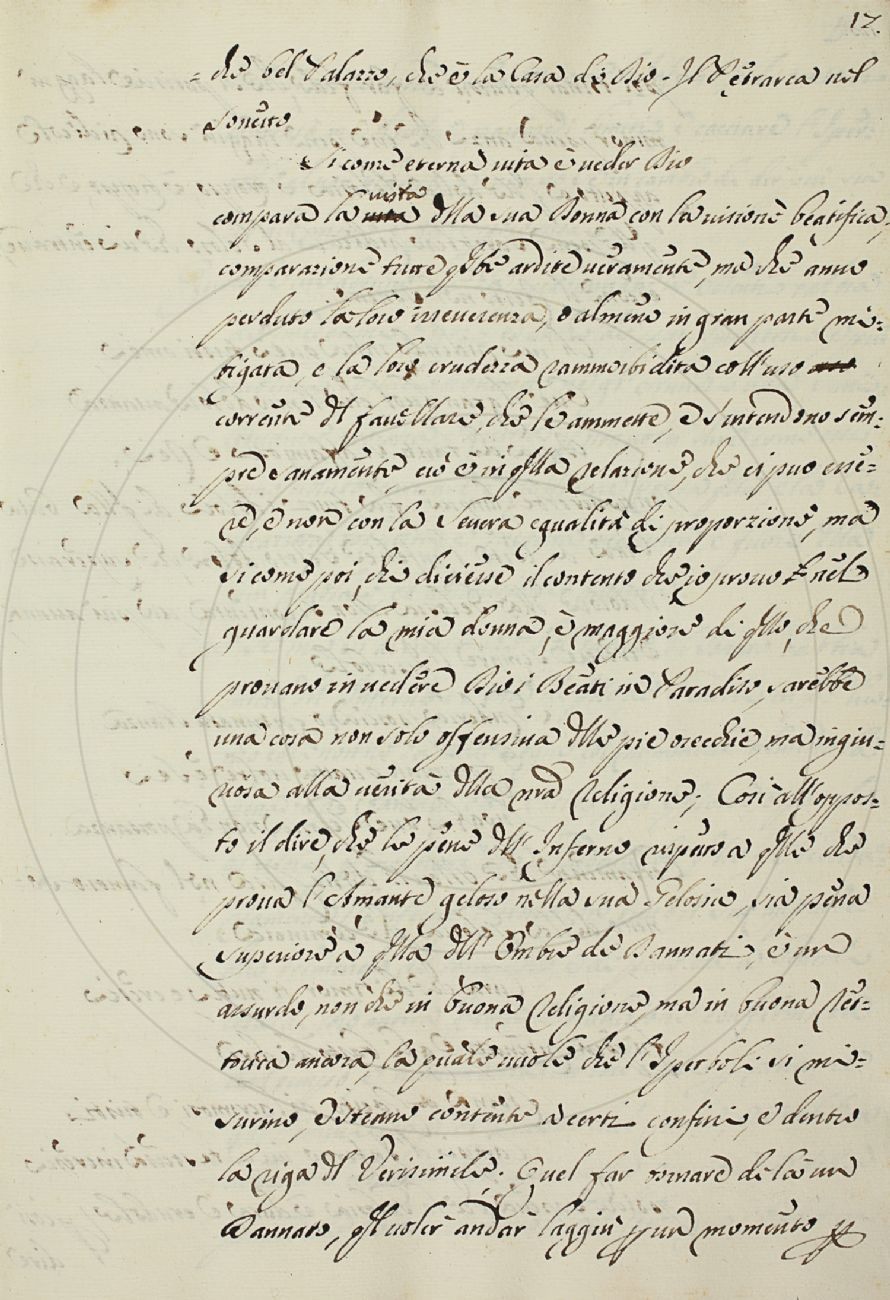 17.
= che bel Palazzo, che è la Casa de Dio. Il Petrarca nel
Sonetto
Si come eterna vita è veder Dio
compara la vita vista dlla sua Donna con la visione beatifica,
comparazione tutte qste ardite veramente, ma che anno
perduto la loro irreverenza, o almeno in gran parte mi=
tigata, e la loro crudezza rammorbidita coll'uso
corrente dl favellare, che le ammette, e s'intendono sem=
pre sanamente, cio è in qlla relazione, che ci puo esse=
re, e non con la severa egualità di proporzione, ma
si come poi, chi dicesse il contento che io provo nel
guardare la mia donna, è maggiore di qllo, che
provano in vedere Dio i Beati in Paradiso, sarebbe
una cosa non solo offensiva dlle pie orecchie, ma ingiu=
riosa alla verità dlla nra Religione; Così all'oppos=
to il dire, che le pene dll'Inferno rispetto a qlle che
prova l'Amante geloso nella sua Gelosia, sia pena
superiore a qlla dll'Ombre de Dannati, è un
assurdo, non che in buona Religione, ma in buona Ret=
torica ancora, la quale vuole che l'Iperboli si mi=
surino, e stieno contente a certi confini, e dentro
la riga dl Verisimile. Quel far tornare di là un
Dannato, qsl voler andar laggiù p un momento p